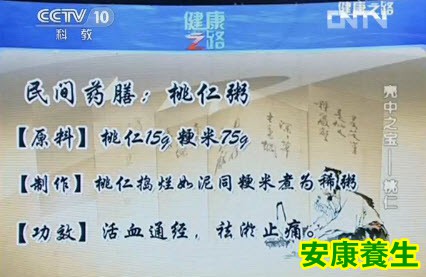 CCTV 10
科教
健康之路
CNTV
健康之路
民间药膳：桃仁粥
【原料】桃仁15g粳米75g
【制作】桃仁捣烂如泥同粳米煮为稀粥
【功效】活血通经，祛淤止痛。
壳中之宝——桃仁
安康養生